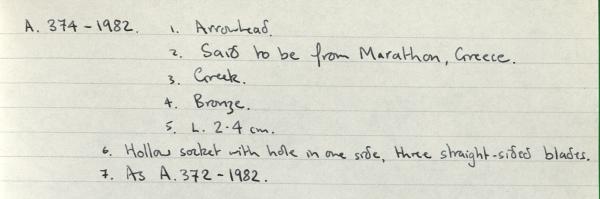 A. 374-1982. 1. Arrowhead.
2. Said to be from Marathon, Greece.
3. Greek.
4. Bronze.
5. L. 2.4 cm.
6. Hollow socket with hole in one side, three straight-sided blades.
7. As A.372-1982.